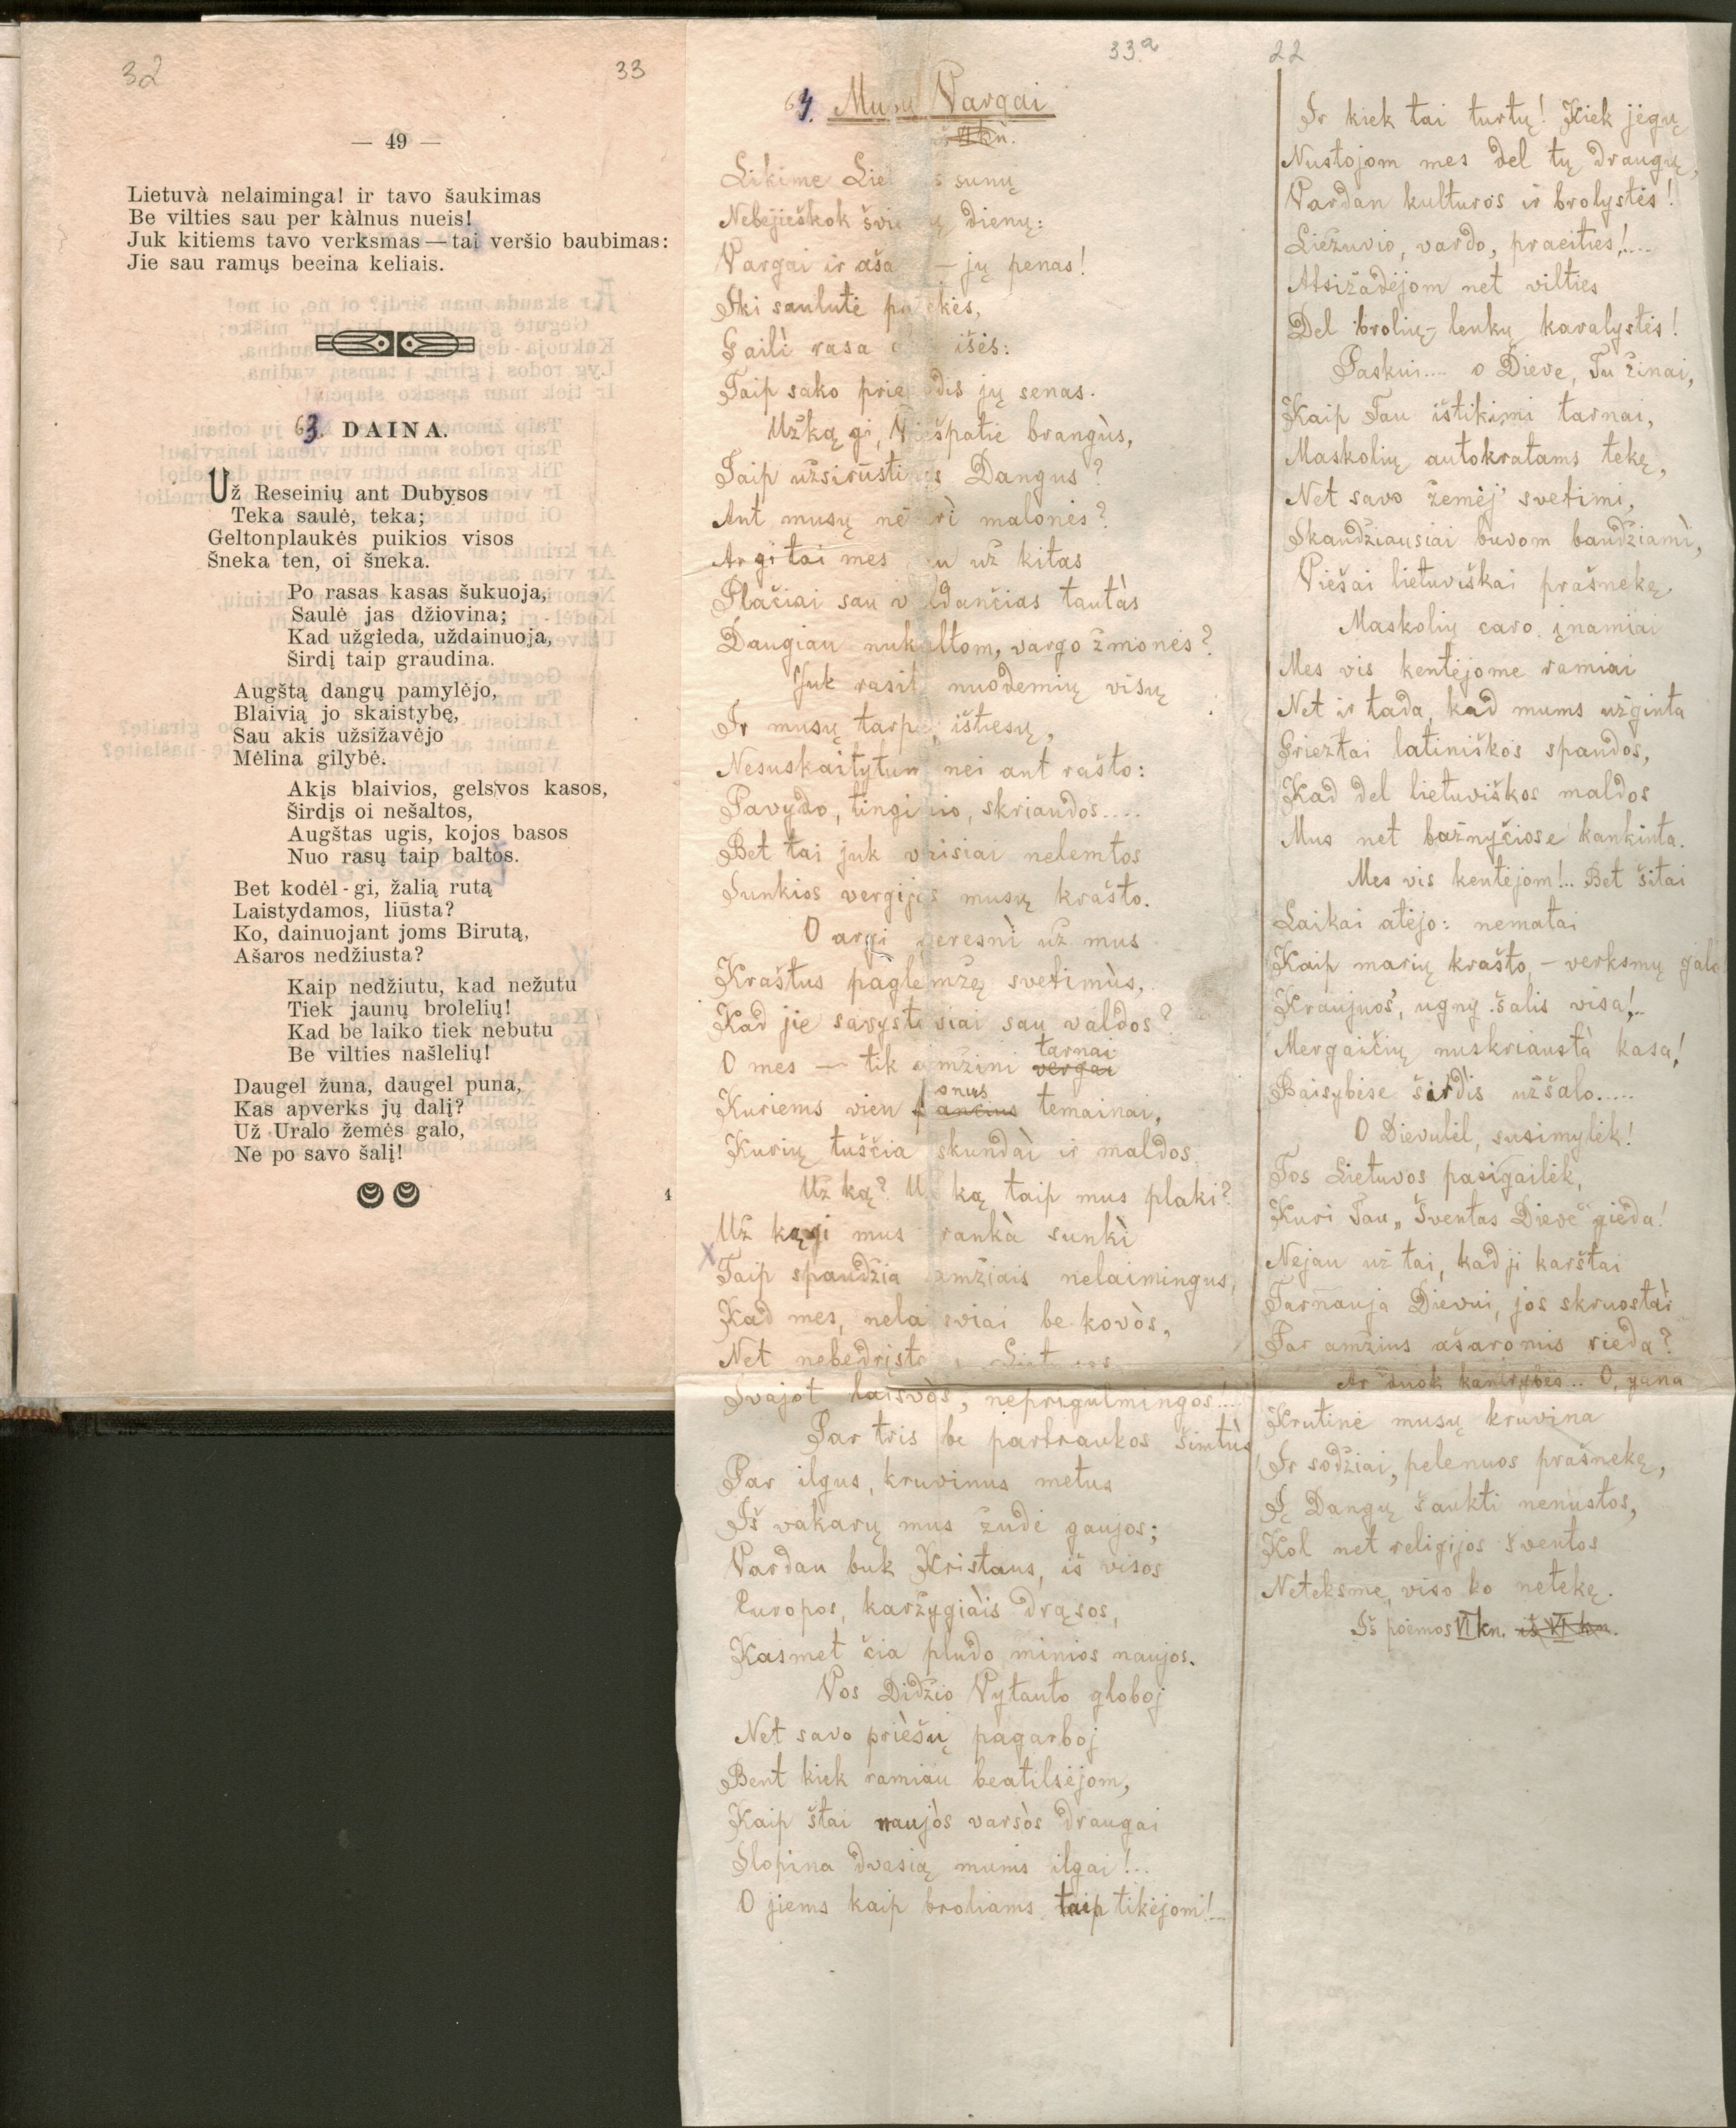 32
33
— 49 —
Lietuvà nelaiminga! ir tavo šaukimas
Be vilties sau per kàlnus nueis!
Juk kitiems tavo verksmas — tai veršio baubimas:
Jie sau ramųs beeina keliais.
63. DAINA.
Už Reseinių ant Dubysos
Teka saulė, teka;
Geltonplaukės puikios visos
Šneka ten, oi šneka.
Po rasas kasas šukuoja,
Saulė jas džiovina;
Kad užgieda, uždainuoja,
Širdį taip graudina.
Augštą dangų pamylėjo,
Blaivią jo skaistybę,
Sau akis užsižavėjo
Mėlina gilybė.
Akįs blaivios, gelsvos kasos,
Širdįs oi nešaltos,
Augštas ugis, kojos basos
Nuo rasų taip baltos.
Bet kodėl-gi, žalią rutą
Laistydamos, liūsta?
Ko, dainuojant joms Birutą,
Ašaros nedžiusta?
Kaip nedžiutu, kad nežutu
Tiek jaunų brolelių!
Kad be laiko tiek nebutu
Be vilties našlelių!
Daugel žuna, daugel puna,
Kas apverks jų dalį?
Už Uralo žemės galo,
Ne po savo šalį!
4
33a
64. Musų Vargai
VI kn.
Likime Lie s sunų
Nebejieškok švie ų dienų:
Vargai ir aša — jų penas!
Iki saulutė pa ekės,
Gaili rasa išės:
Taip sako prie dis jų senas.
Už ką gi, Viešpatie brangùs,
Taip užsirūsti s Dangus?
Ant musų ne ri malonės?
Argi tai mes u už kitas
Plačiai sau v ldančias tautàs
Daugiau nukaltom, vargo žmonės?
Juk rasit nuodemių visų
Ir musų tarpe, ištiesų,
Nesuskaitytum nei ant rašto:
Pavydo, tingi io, skriaudos....
Bet tai juk vaisiai nelemtos
Sunkios vergijos musų krašto.
O argi geresnì už mus
Kraštus paglemžę svetimùs,
Kad jie savysto viai sau valdos?
O mes — tik amžini vergai tarnai
Kuriems vien ančius onus temainai,
Kurių tuščia skundaì ir maldos.
Už ką? Už ką taip mus plaki?
Už kągi mus rankà sunkì
Taip spaudžia amžiais nelaimingus,
Kad mes, nela sviai be kovòs,
Net nebedrįsta
Svajot laisvòs, neprigulmingos!...
Par tris be partraukos šimtùs
Par ilgus, kruvinus metus
Iš vakarų mus žudė gaujos;
Vardan buk Kristaus, iš visos
Europos, karžygiàis drąsos,
Kasmet čia pludo minios naujos.
Vos Didžio Vytauto globoj
Net savo priėšų pagarboj
Bent kiek ramiau beatilsėjom,
Kaip štai naujòs varsòs draugai
Slopina dvasią mums ilgai!..
O jiems kaip broliams taip tikėjom!...
22
Ir kiek tai turtų! Kiek jiegų
Nustojom mes del tų draugų,
Vardan kulturos ir brolystės!
Liežuvio, vardo, praeities!....
Atsižadėjom net vilties
Del brolių-lenkų kavalystės!
Paskui.... o Dieve, Tu žinai,
Kaip Tau ištikimi tarnai,
Maskolių autokratams tekę,
Net savo žemėj' svetimi,
Skaudžiausiai buvom baudžiamì,
Viešai lietuviškai prašnekę.
Maskolių caro įnamiai
Mes vis kentėjome ramiai
Net ir tada, kad mums užginta
Griežtai latiniškos spaudos,
Kad del lietuviškos maldos
Mus net bažnyčiose kankinta.
Mes vis kentėjom!.. Bet šitai
Laikai atėjo: nematai
Kaip marių krašto, — verksmų galo
Kraujuos', ugny šalis visa!..
Mergaičių nuskriausta kasa!
Baisybėse širdis užšalo.....
O Dievulėl, susimylėk!
Tos Lietuvos pasigailėk,
Kuri Tau „Šventas Dieve" gieda!
Nejau už tai, kad ji karštai
Tarnauja Dievui, jos skruostaì
Par amžius ašaromis rieda?
Ar suok kantrybės... O, gana
Krutinė musų kruvina
Ir sodžiai, pelenuos prašnekę,
Į Dangų šaukti nenustos,
Kol net religijos šventos
Neteksme, viso ko netekę.
Iš poemos VI kn. iš VI kn.